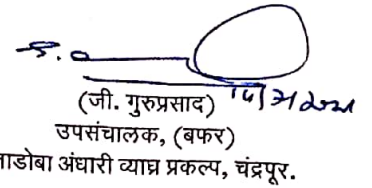 (जी. गुरुप्रसाद)
उपसंचालक, (बफर)
ाडोबा अंधारी व्याघ्र प्रकल्प, चंद्रपूर.